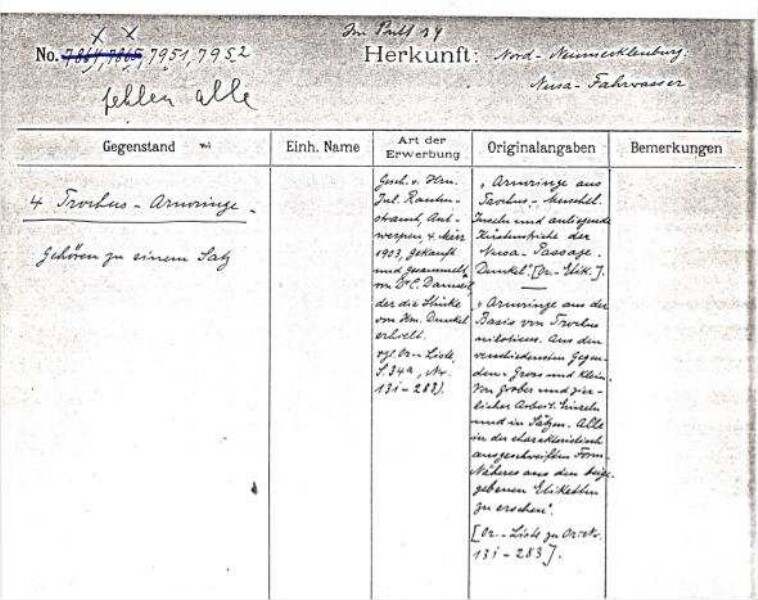 Im Pult 14
x x
No. 7864, 7865, 7951, 7952
Herkunft: Nord-Neumecklenburg:
Nusa-Fahrwasser
fehlen alle
Gegenstand
Einh. Name
Art der
Erwerbung
Originalangaben
Bemerkungen
4 Trochus-Armringe.
Gehören zu einem Satz
Gesch. v. Hrn.
Jul. Rauten-
strauch, Ant-
werpen, 4. März
1903, gekauft
und gesammelt
von Dr. C. Danneil,
der die Stücke
von Hrn. Dunkel
erhielt.
vgl. Or.-Liste,
S. 34a, Nr.
131-283).
"Armringe aus
Trochus-Muschel.
Inseln und anliegende
Küstenstriche der
Nusa-Passage.
Dunkel". [Or.-Etik.].
"Armringe aus der
Basis von Trochus
niloticus. Aus den
verschiedensten Gegen-
den. Gross und klein.
Von grober und zier-
licher Arbeit. Einzeln
und in Sätzen. Alle
in der charakteristisch
ausgeschweiften Form.
Näheres aus den beige-
gebenen Etiketten
zu ersehen".
[Or.-Liste zu Or.-Nr.
131-283].